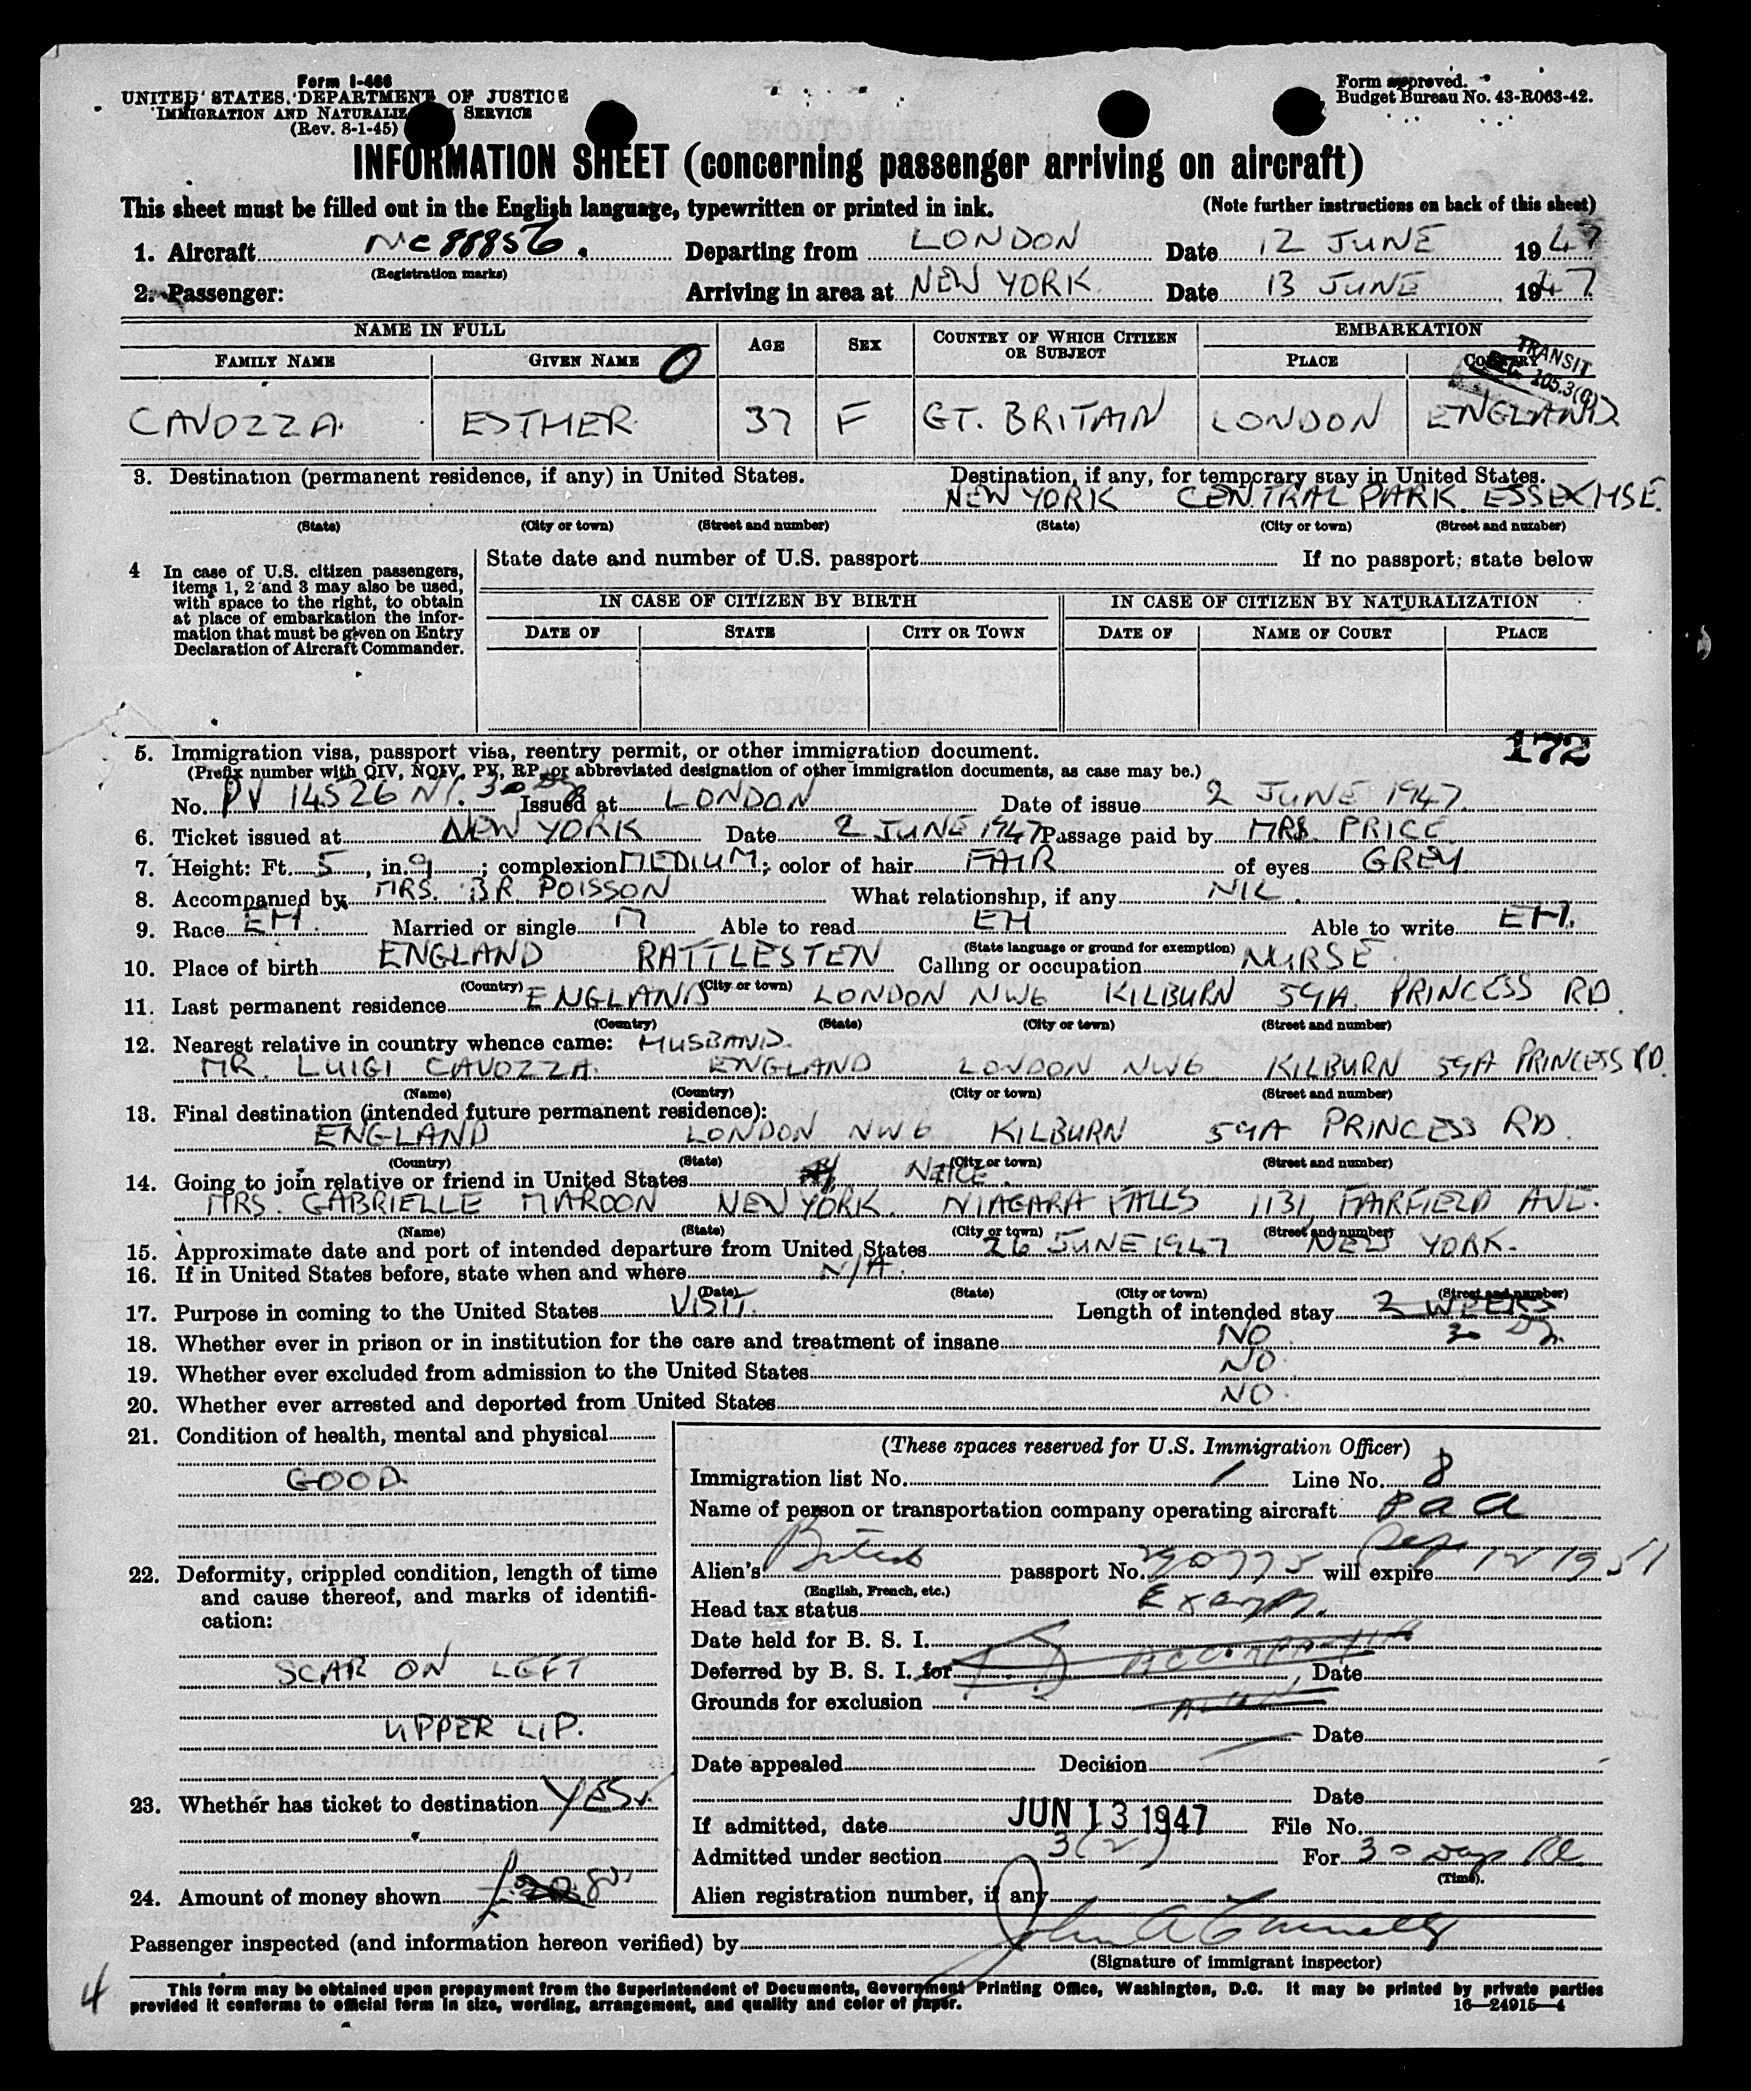 Form I-466
UNITED STATES DEPARTMENT OF JUSTICE
IMMIGRATION AND NATURALIZ SERVICE
(Rev. 8-1-45)
Form approved.
Budget Bureau No. 43-R063-42.
INFORMATION SHEET (concerning passenger arriving on aircraft)
This sheet must be filled out in the English language, typewritten or printed in ink. (Note further instructions on back of this sheet)
1. Aircraft NC 88856. Departing from LONDON Date 12 JUNE 1947
(Registration marks)
2. Passenger: Arriving in area at NEW YORK Date 13 JUNE 1947
NAME IN FULL AGE SEX COUNTRY OF WHICH CITIZEN OR SUBJECT EMBARKATION
FAMILY NAME GIVEN NAME O PLACE COUNTRY
TRANSIT
SEC. 105.3(a)
CAVOZZA ESTHER 37 F GT. BRITAIN LONDON ENGLAND
3. Destination (permanent residence, if any) in United States. Destination, if any, for temporary stay in United States.
NEW YORK CENTRAL PARK ESSEX HSE.
(State) (City or town) (Street and number) (State) (City or town) (Street and number)
4 In case of U.S. citizen passengers, items 1, 2 and 3 may also be used, with space to the right, to obtain at place of embarkation the information that must be given on Entry Declaration of Aircraft Commander.
State date and number of U.S. passport If no passport; state below
IN CASE OF CITIZEN BY BIRTH IN CASE OF CITIZEN BY NATURALIZATION
DATE OF STATE CITY OR TOWN DATE OF NAME OF COURT PLACE
172
5. Immigration visa, passport visa, reentry permit, or other immigration document.
(Prefix number with QIV, NQIV, PV, RP, or abbreviated designation of other immigration documents, as case may be.)
No. PV 14526 Issued at LONDON Date of issue 2 JUNE 1947
6. Ticket issued at NEW YORK Date 2 JUNE 1947 Passage paid by MRS. PRICE
7. Height: Ft. 5, in. 9; complexion MEDIUM; color of hair FAIR of eyes GREY
8. Accompanied by MRS. B.R. POISSON What relationship, if any NIL.
9. Race EH. Married or single M Able to read EH Able to write EH.
(State language or ground for exemption)
10. Place of birth ENGLAND RATTLESTEN Calling or occupation NURSE.
(Country) (City or town)
11. Last permanent residence ENGLAND LONDON NW6 KILBURN 59A PRINCESS RD
(Country) (State) (City or town) (Street and number)
12. Nearest relative in country whence came: HUSBAND.
MR. LUIGI CAVOZZA. ENGLAND LONDON NW6 KILBURN 59A PRINCESS RD.
(Name) (Country) (City or town) (Street and number)
13. Final destination (intended future permanent residence):
ENGLAND LONDON NW6 KILBURN 59A PRINCESS RD.
(Country) (State) (City or town) (Street and number)
14. Going to join relative or friend in United States NEICE.
MRS. GABRIELLE MAROON NEW YORK. NIAGARA FALLS 1131, FAIRFIELD AVE.
(Name) (State) (City or town) (Street and number)
15. Approximate date and port of intended departure from United States 26 JUNE 1947 NEW YORK.
16. If in United States before, state when and where N/A.
(Date) (State) (City or town) (Street and number)
17. Purpose in coming to the United States VISIT. Length of intended stay 2 WEEKS
18. Whether ever in prison or in institution for the care and treatment of insane NO.
19. Whether ever excluded from admission to the United States NO.
20. Whether ever arrested and deported from United States NO.
21. Condition of health, mental and physical
GOOD.
22. Deformity, crippled condition, length of time and cause thereof, and marks of identification:
SCAR ON LEFT
UPPER LIP.
23. Whether has ticket to destination YES
24. Amount of money shown
(These spaces reserved for U.S. Immigration Officer)
Immigration list No. 1 Line No. 8
Name of person or transportation company operating aircraft P a a
Alien's British passport No. will expire 12 1951
(English, French, etc.)
Head tax status Exempt.
Date held for B. S. I.
Deferred by B. S. I. for , Date
Grounds for exclusion
Date
Date appealed Decision
Date
If admitted, date JUN 13 1947 File No.
Admitted under section 3(2) For 30 Days
(Time).
Alien registration number, if any
Passenger inspected (and information hereon verified) by
(Signature of immigrant inspector)
4
This form may be obtained upon prepayment from the Superintendent of Documents, Government Printing Office, Washington, D.C. It may be printed by private parties
provided it conforms to official form in size, wording, arrangement, and quality and color of paper. 16—24915-4